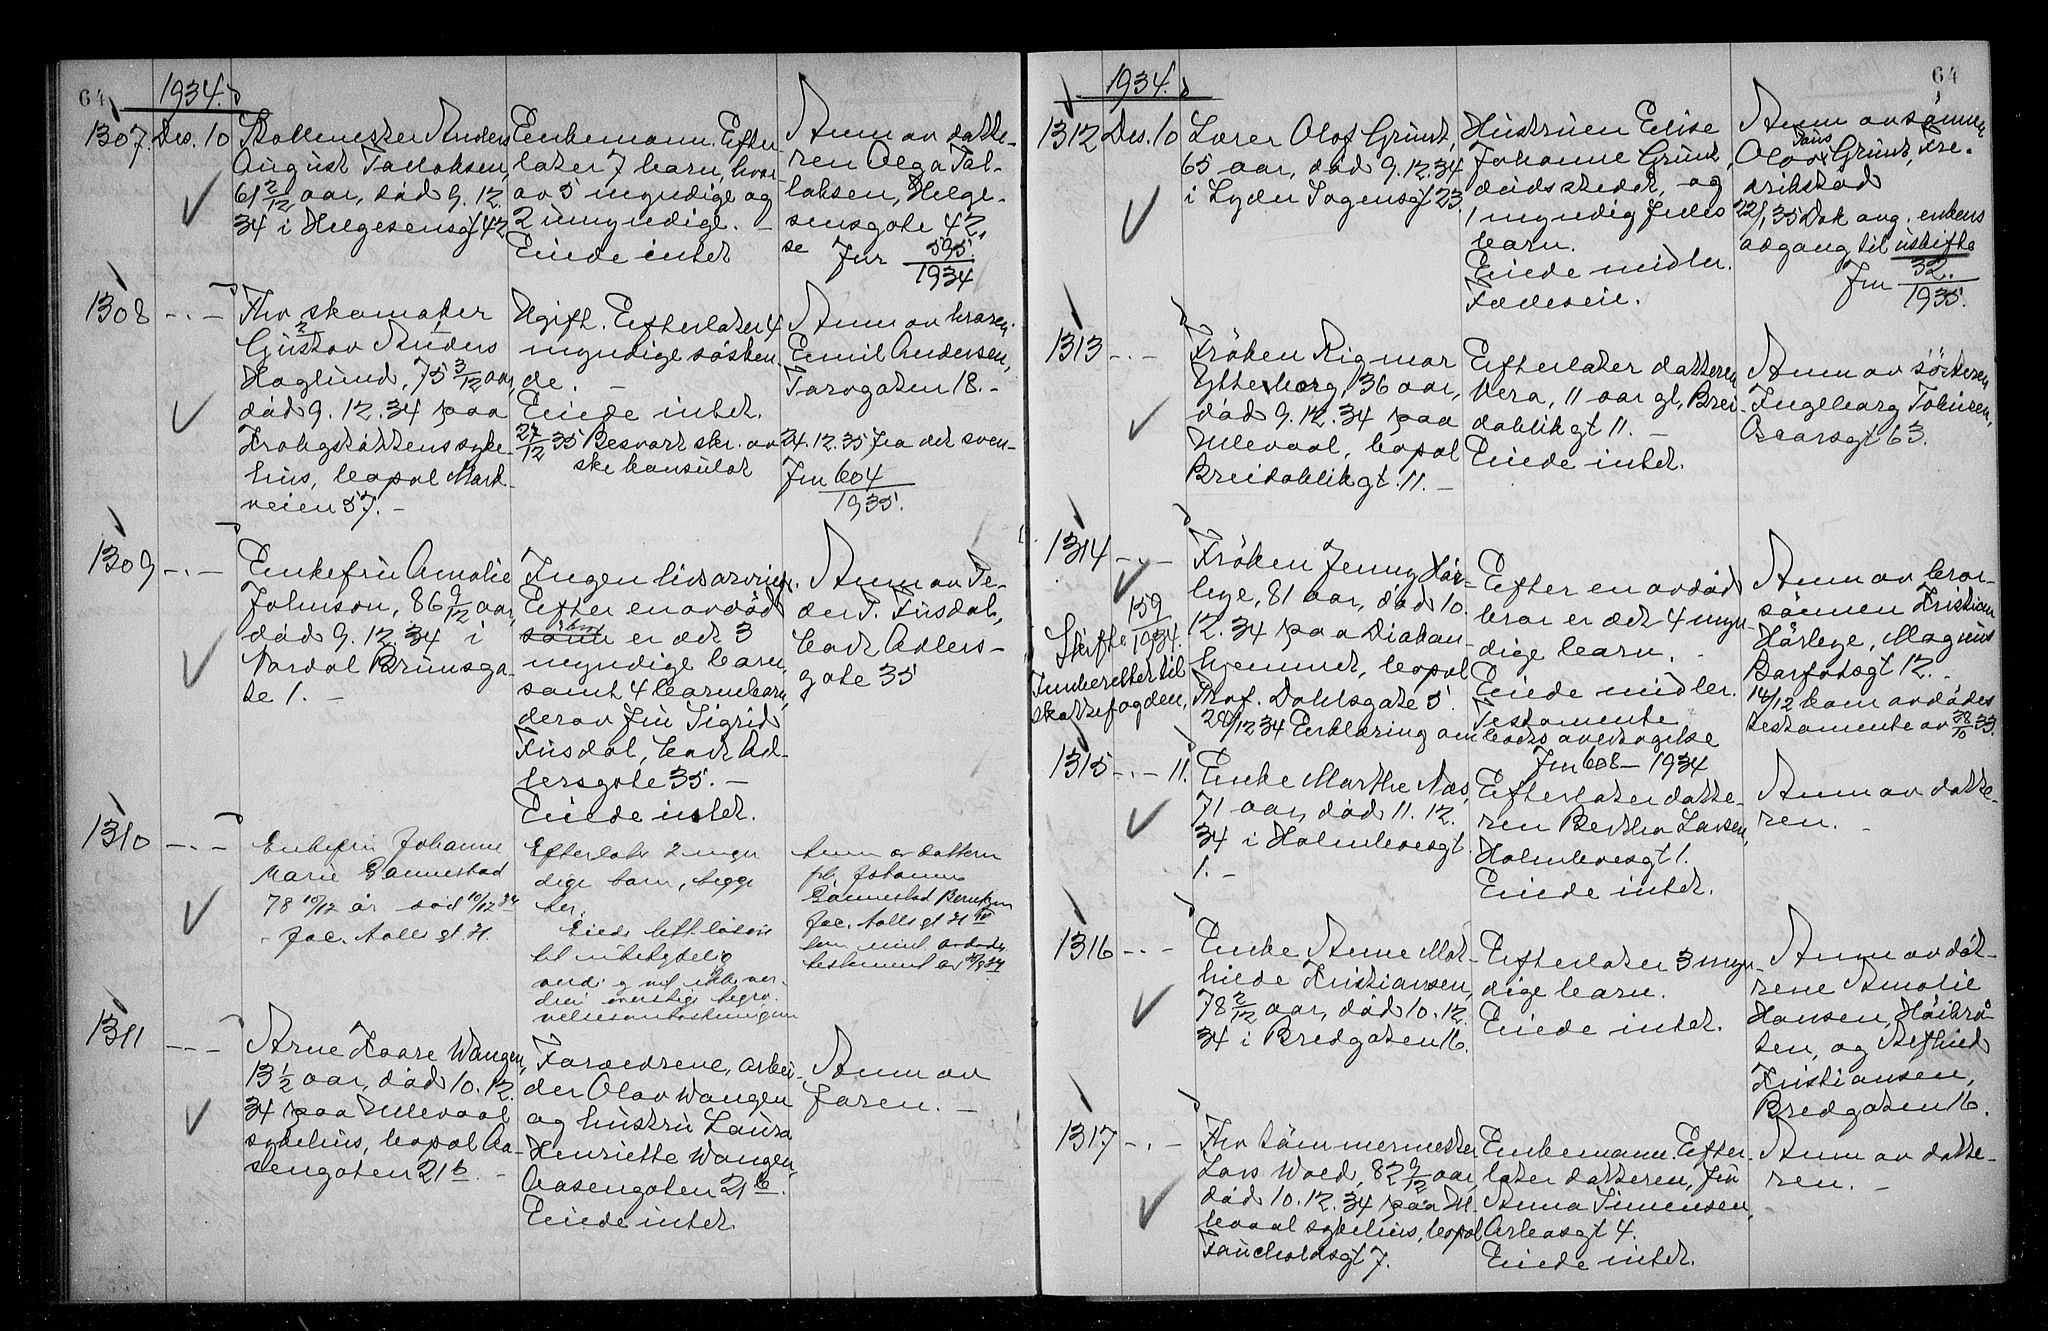 64
1934.
1307. Des. 10
Stallmester Anders
August Tallaksen,
61 2/12 aar, död 9.12.
34 i Helgesensgt 42
Enkemann. Efter-
later 7 barn, hvor-
av 5 myndige og
2 umyndige. –
Eiede intet
Anm av datte-
ren Olga Tal-
laksen, Helge-
sensgate 42.
se Jnr 595/1934
1308 -.-
Fhv skomaker
Gustav Anders
Haglund, 75 3/12 aar,
död 9.12.34 paa
Krohgstöttens syke-
hus, bopæl Mark-
veien 57. –
Ugift. Efterlater 4
myndige søsken-
de. –
Eiede intet.
27/12 35 Besvart skr. av
Anm av broren
Emil Andersen,
Torvgaten 18. –
24.12.35 fra det sven-
ske konsulat
Jnr 604/1935.
1309 -.-
Enkefru Amalie
Johnson, 86 9/12 aar,
död 9.12.34 i
Nordal Brunsga-
te 1. –
Ingen livsarvinger.
Efter en avdöd
sönn er det 3
myndige barn
samt 4 barnebarn,
derav fru Sigrid
Fusdal, Cort Ad-
lersgate 35. –
Eiede intet.
Anm av Pe-
der T. Fusdal,
Cort Adlers-
gate 35
1310 -.-
Enkefru Johanne
Marie Gannestad
78 10/12 år död 10/12 34
Jac. Aalls gt. 21.
Efterlater 2 myn
dige barn, begge
her.
Eiede litt løsøre
til ubetydelig
verdi og vil ikke ver-
dien overstige begra-
velsesomkostningene
Anm av datteren
frk. Johanne
Gannestad
Jac. Aalls gt 21
testament av
1311 -.-
Arne Kaare Wangen,
13 1/2 aar, död 10.12.
34 paa Ullevaal
sykehus, bopæl Aa-
sengaten 21 b. –
Foreldrene, arbei-
der Olav Wangen
og hustru Laura
Henriette Wangen,
Aasengaten 21 b.
Eiede intet
Anm av
faren. –
64
1934.
1312 Des. 10
Lærer Olof Grunt,
65 aar, död 9.12.34
i Lyder Sagensgt 23.
Hustruen Elise
Johanne Grunt,
dödsstedet, og
1 myndig fælles
barn.
Eiede midler.
Fælleseie.
Anm av sönnen
Olav Grunt, Fre-
drikstad
22/1 35 Dok ang. enkens
adgang til uskifte
Jnr 32/1935.
1313 -.-
Fröken Rigmor
Ytterborg, 36 aar,
död 9.12.34 paa
Ullevaal, bopæl
Breidablikgt. 11. –
Efterlater datteren
Vera, 11 aar gl, Brei-
dablikgt 11. –
Eiede intet.
Anm av sösteren
Ingeborg Johnsen,
Oscarsgt 63.
1314 -.-
Skifte 159/1934.
Innberettet til
skattefogden,
Fröken Jenny Hör-
bye, 81 aar, död 10.
12.34 paa Diakon-
hjemmet, bopæl
Prof. Dahlsgate 5.
28/12 34 Erklæring om bocts overtagelse
Efter en avdöd
bror er det 4 myn-
dige barn. –
Eiede midler.
Testamente
Jnr 608 – 1934
Anm av bror-
sönnen Kristian
Hörbye, Magnus
Barfotsgt 12. –
14/12 kom avdödes
testamente av 28/10 33.
1315 -.- 11.
Enke Marthe Næs,
71 aar, död 11.12.
34 i Holmboesgt
1. –
Efterlater datte-
ren Bertha Larsen,
Holmboesgt 1.
Eiede intet.
Anm av datte-
ren. –
1316 -.-
Enke Anne Mat-
hilde Kristiansen,
78 2/12 aar, död 10.12.
34 i Bredgaten 16.
Efterlater 3 myn-
dige barn.
Eiede intet.
Anm av döt-
rene Amalie
Hansen, Höibrå-
ten, og Asthild
Kristiansen,
Bredgaten 16.
1317 -.-
Fhv tömmermester
Lars Wold, 82 9/12 aar,
död 10.12.34 paa Ul-
levaal sykehus, bopæl
Faucholdsgt 7.
Enkemann. Efter-
later datteren, fru
Anna Simensen,
Arbosgt 4.
Eiede intet.
Anm av datte-
ren. –